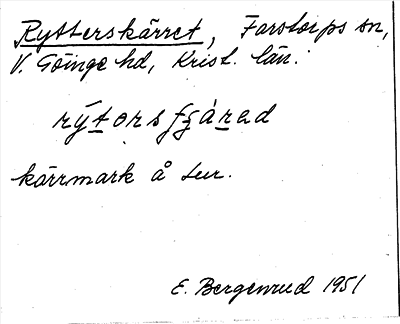 Rytterskärret, Farstorps sn,
V. Göinge hd, Krist. län.
kärrmark å Lur.
E. Bergenrud 1951